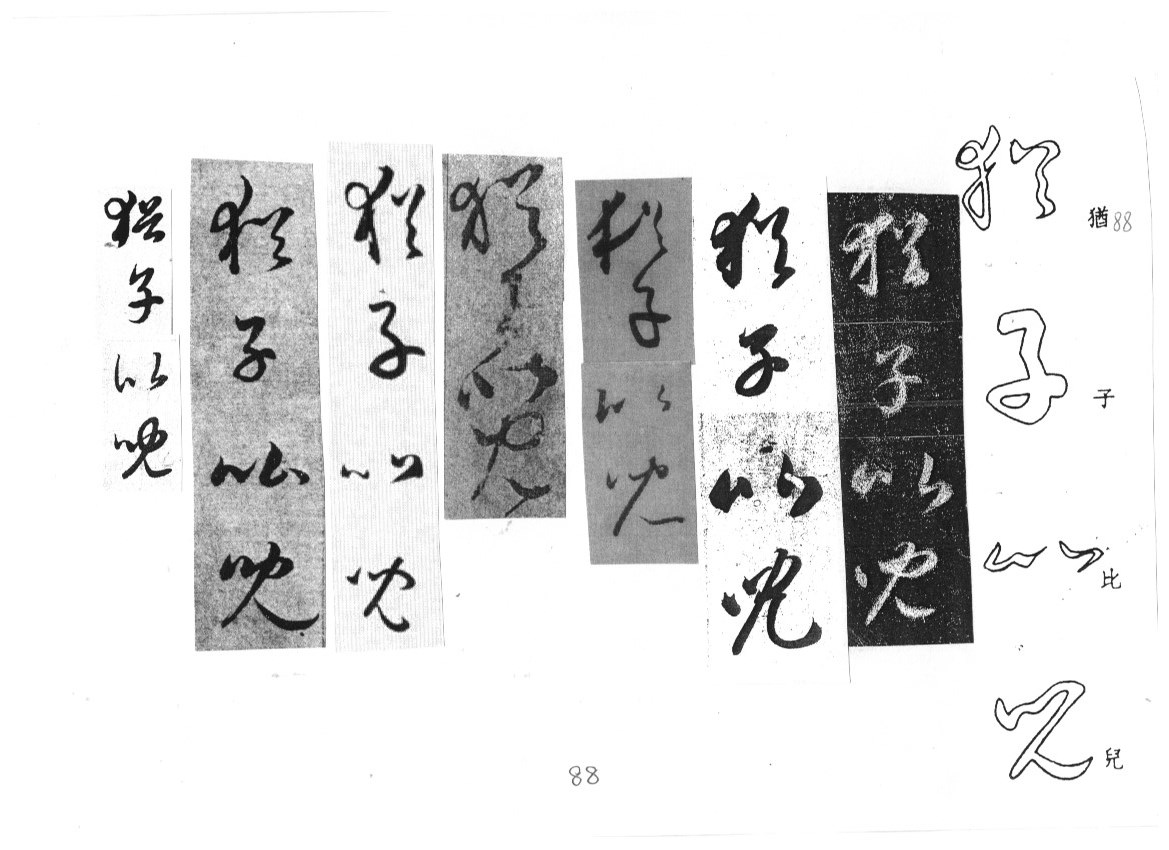 猶子比兒
猶 88
子
比
兒
猶子比兒
猶子比兒
猶子比兒
猶子比兒
猶子比兒
猶子比兒
猶子比兒
88